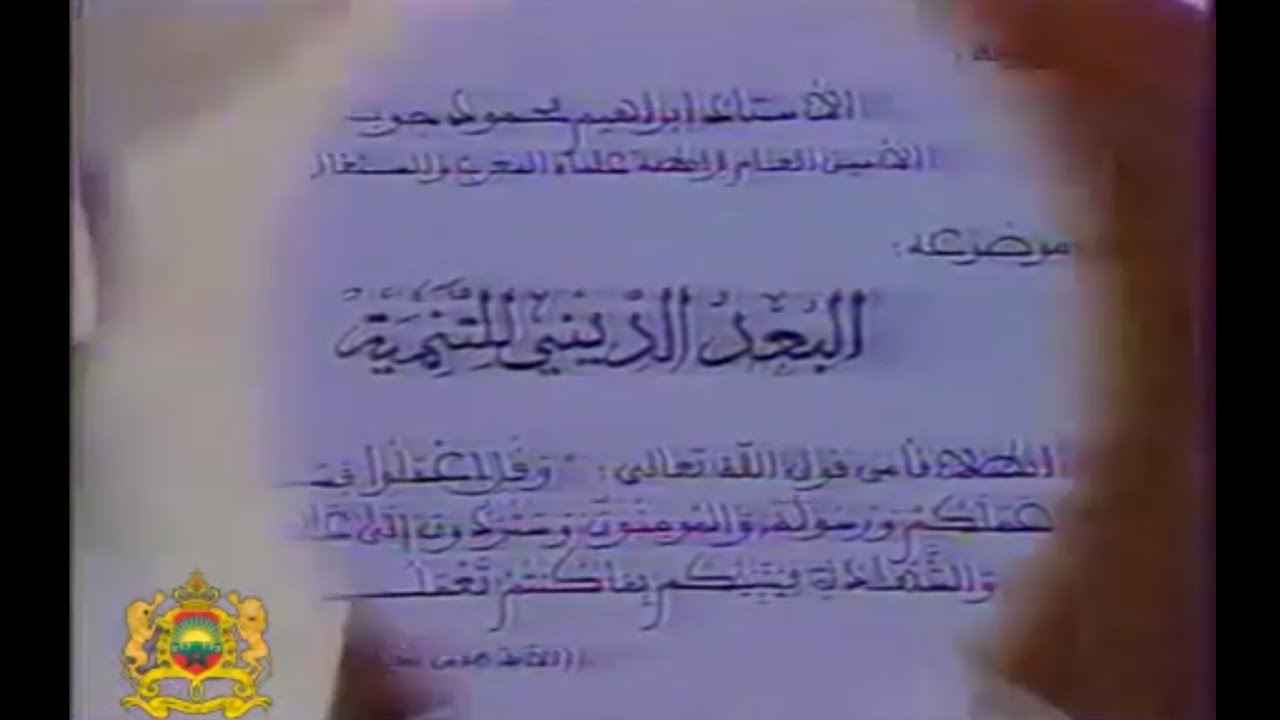 الأستاذ ابراهيم محمود جوب
الأمين العام لرابطة علماء المغرب والسنغال
موضوعه :
البُعْدُ الدِّينِيُّ لِلتَّنْمِيَةِ
انطلاقا من قول الله تعالى : " وَقُلِ اعْمَلُوا
عَمَلَكُمْ وَرَسُولُهُ وَالْمُومِنُونَ وَسَتُرَدُّونَ إِلَى
وَالشَّهَادَةِ فَيُنَبِّئُكُم بِمَا كُنتُمْ